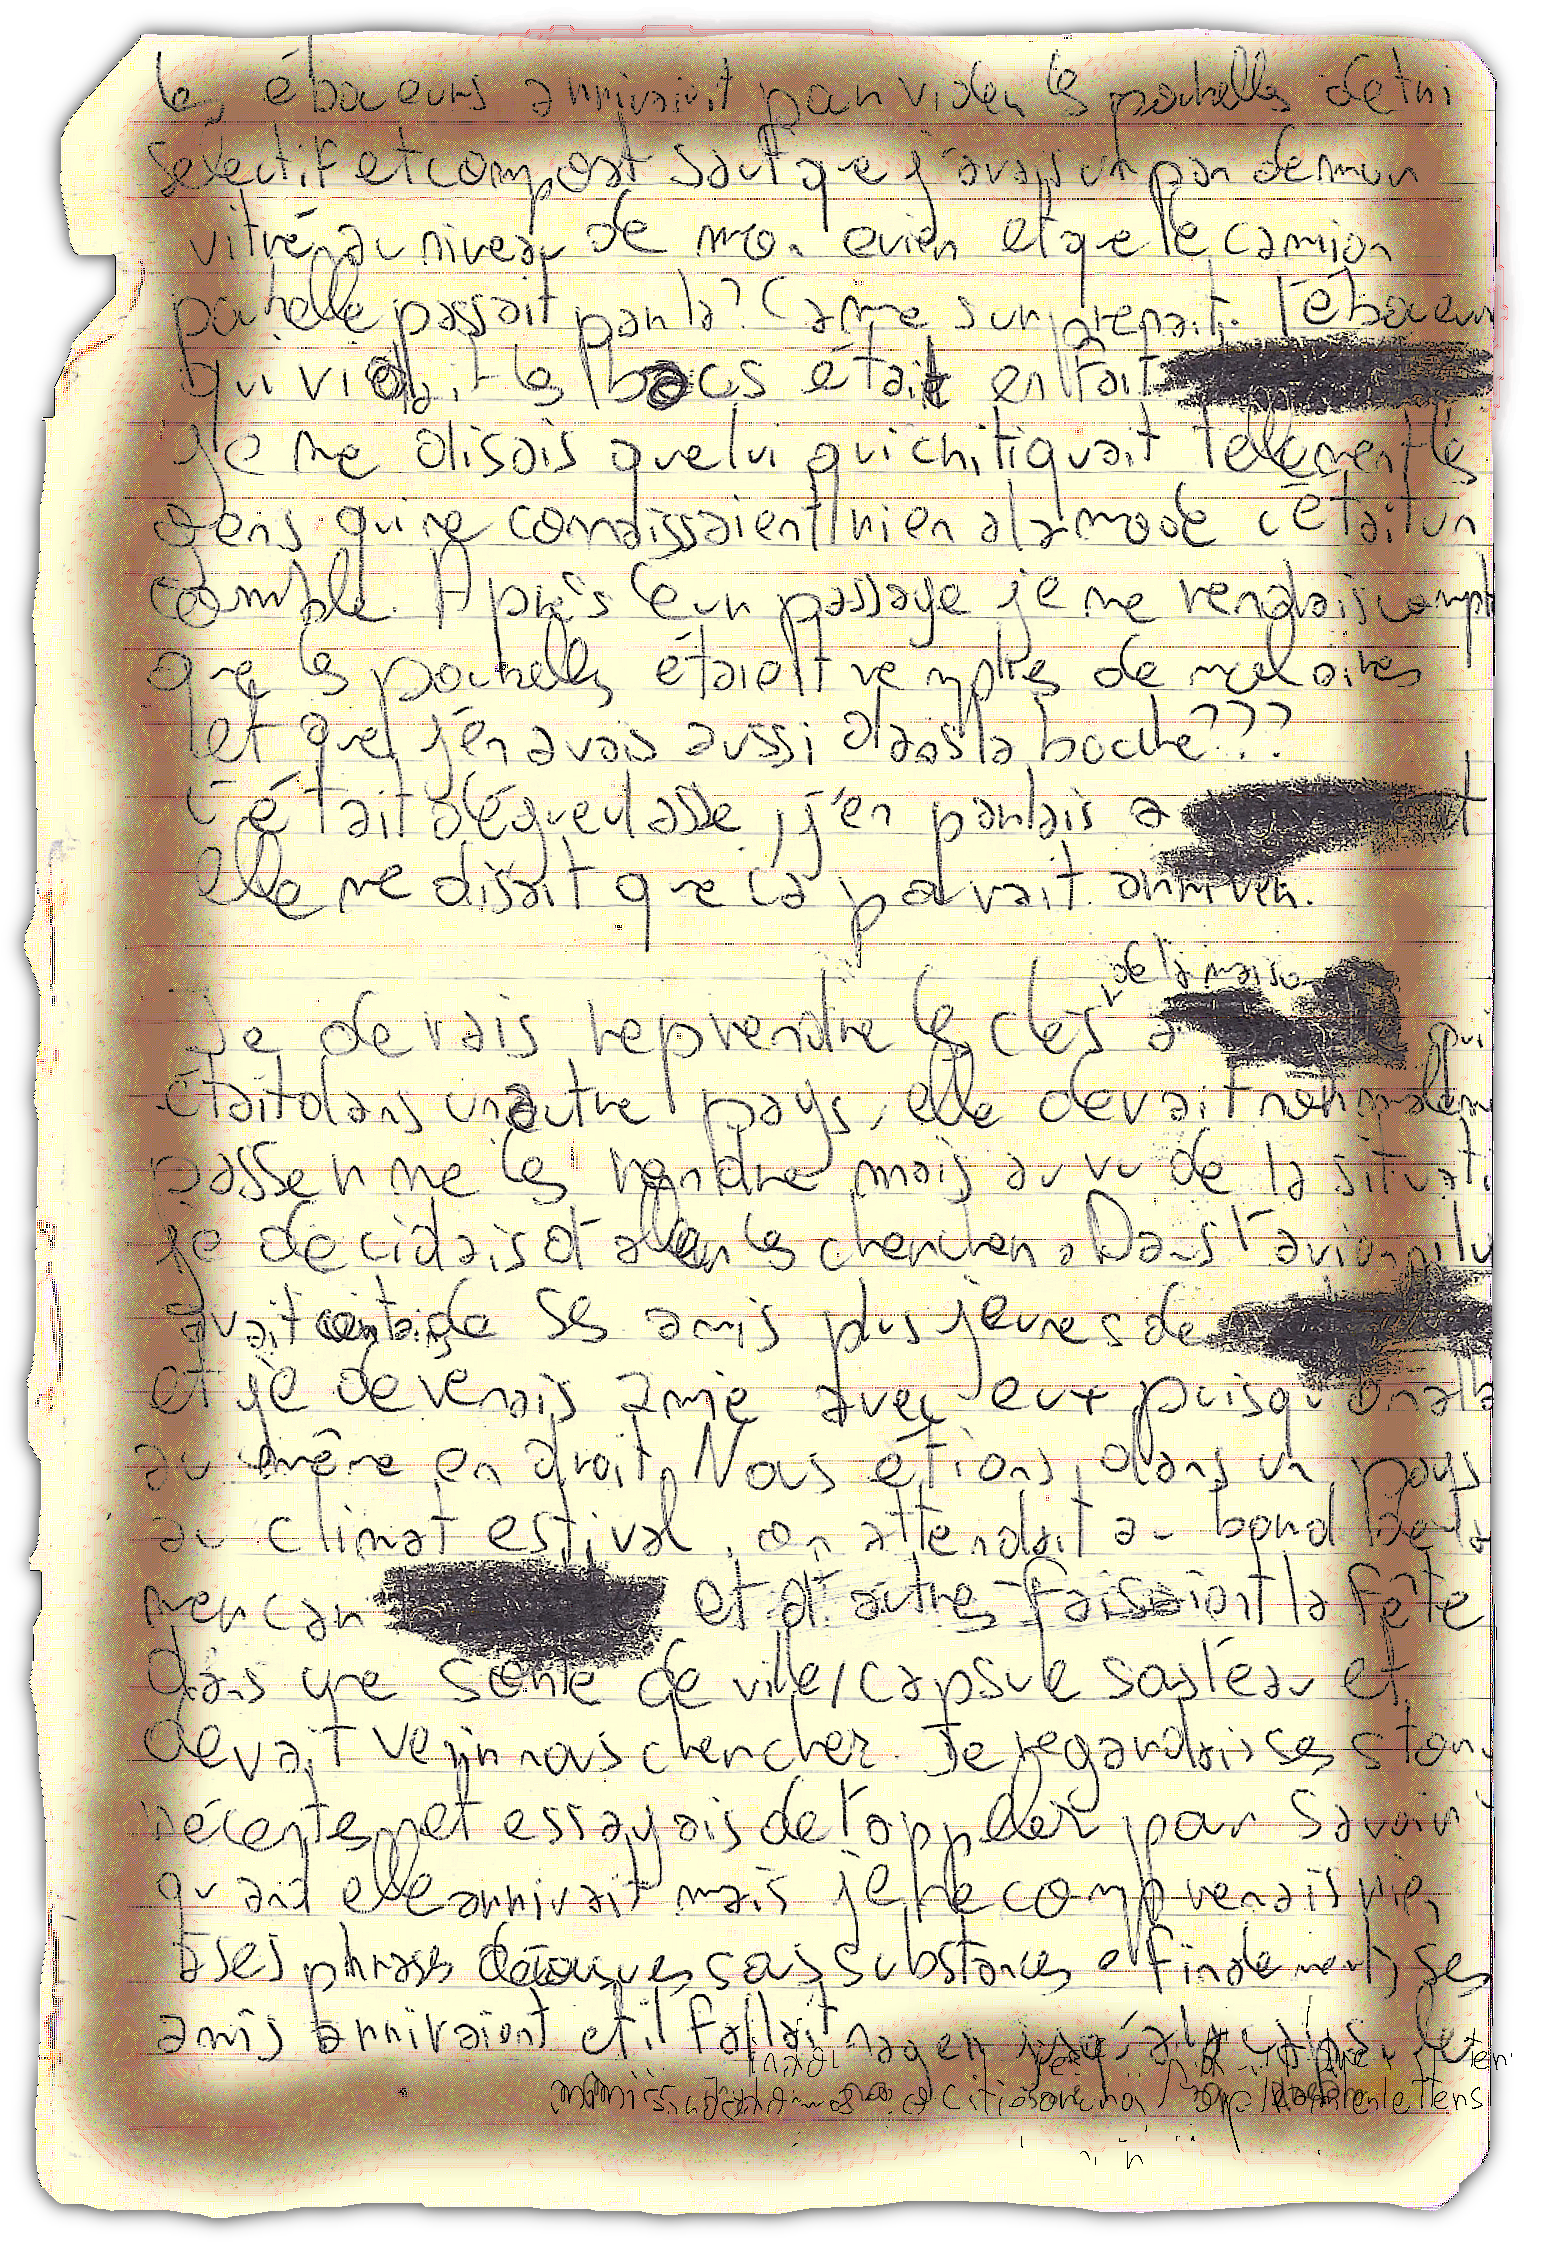 les éboueurs arrivaient pour vider les poubelles de tri
sélectif et compost sauf que j'avais un pan de mur
vitré au niveau de mon evier et que le camion
poubelle passait par la? Ca me surprenait. l'éboueur
qui vidait les bacs était en fait
je me disais que lui qui critiquait tellement les
gens qui ne connaissaient rien a la mode c'était un
comble. Après leur passage je me rendais compte
que les poubelles étaient remplies de
et que j'en avais aussi dans la bouche???
c'était dégueulasse, j'en parlais a et
elle me disait que ca pouvait arriver.
de la maison
Je devais reprendre les clés a qui
était dans un autre pays, elle devait normalement
passer me les rendre mais au vu de la situati
je decidais d'aller les chercher. Dans l'avion il y
avait certains de ses amis plus jeunes de
et je devenais amie avec eux puisqu'on alla
au même endroit. Nous étions dans un pays
au climat estival, on attendait au bord de la
mer car et d'autres faisaient la fête
dans une sorte de ville/capsule sous l'eau et
devait venir nous chercher. Je regardais ses story
récentes et essayais de l'appeler pour savoir
quand elle arrivait mais je ne comprenais rien
a ses phrases sous substances finalement ses
amis arrivaient et il fallait nager jusqu'a la